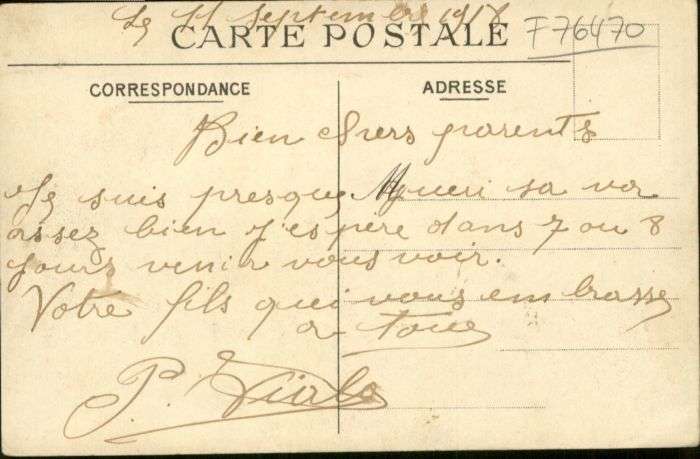 Le 11 Septembre 1918
CARTE POSTALE
F76470
CORRESPONDANCE
ADRESSE
Bien chers parents
Je suis presque gueri sa va
assez bien j'espère dans 7 ou 8
jours venir vous voir.
Votre fils qui vous embrasse
a tous
P. Viala